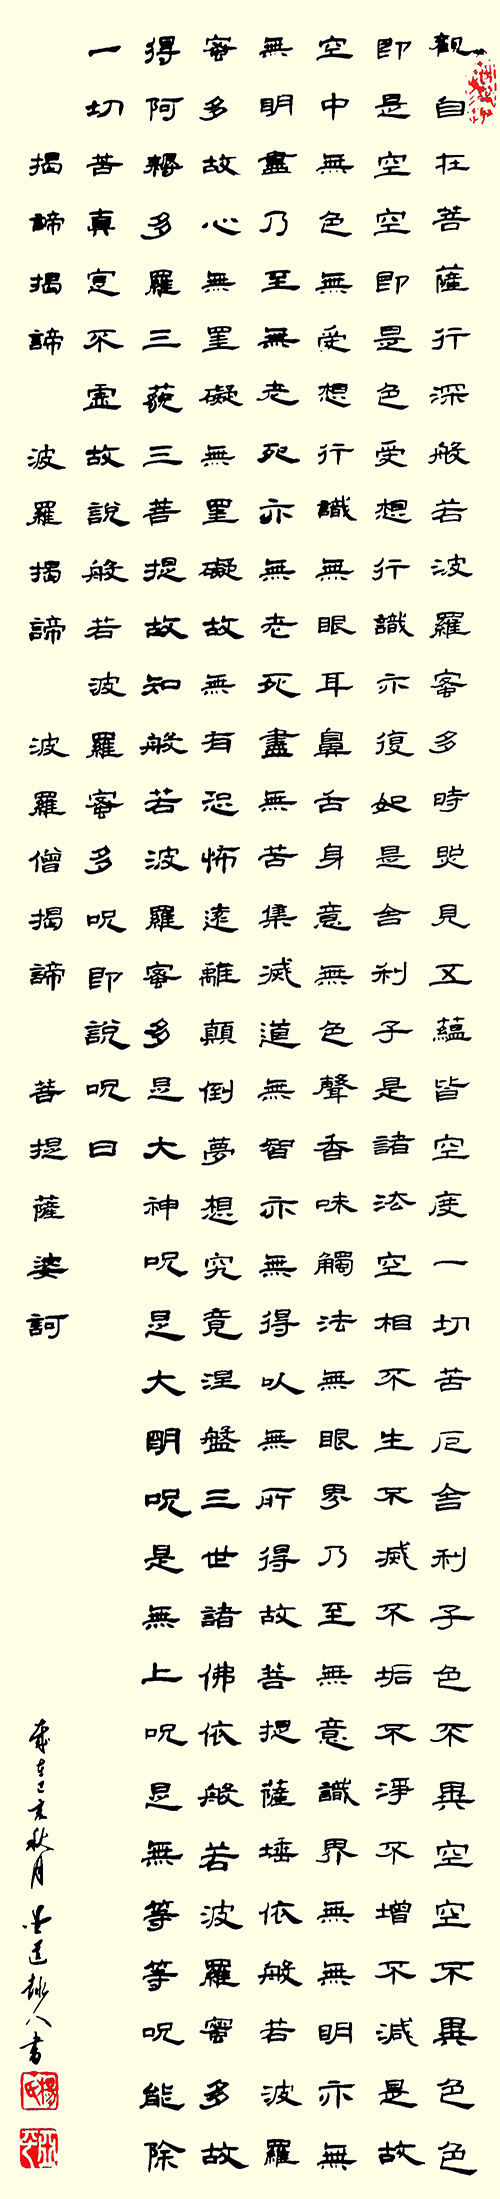 觀自在菩薩行深般若波羅蜜多時照見五蘊皆空度一切苦厄舍利子色不異空空不異色色
即是空空即是色受想行識亦復如是舍利子是諸法空相不生不滅不垢不淨不增不減是故
空中無色無受想行識無眼耳鼻舌身意無色聲香味觸法無眼界乃至無意識界無無明亦無
無明盡乃至無老死亦無老死盡無苦集滅道無智亦無得以無所得故菩提薩埵依般若波羅
蜜多故心無罣礙無罣礙故無有恐怖遠離顛倒夢想究竟涅盤三世諸佛依般若波羅蜜多故
得阿耨多羅三藐三菩提故知般若波羅蜜多是大神呪是大明呪是無上呪是無等等呪能除
一切苦真實不虛故說般若波羅蜜多呪即說呪曰
揭諦揭諦 波羅揭諦 波羅僧揭諦 菩提薩婆訶
歲在己亥秋月 人書